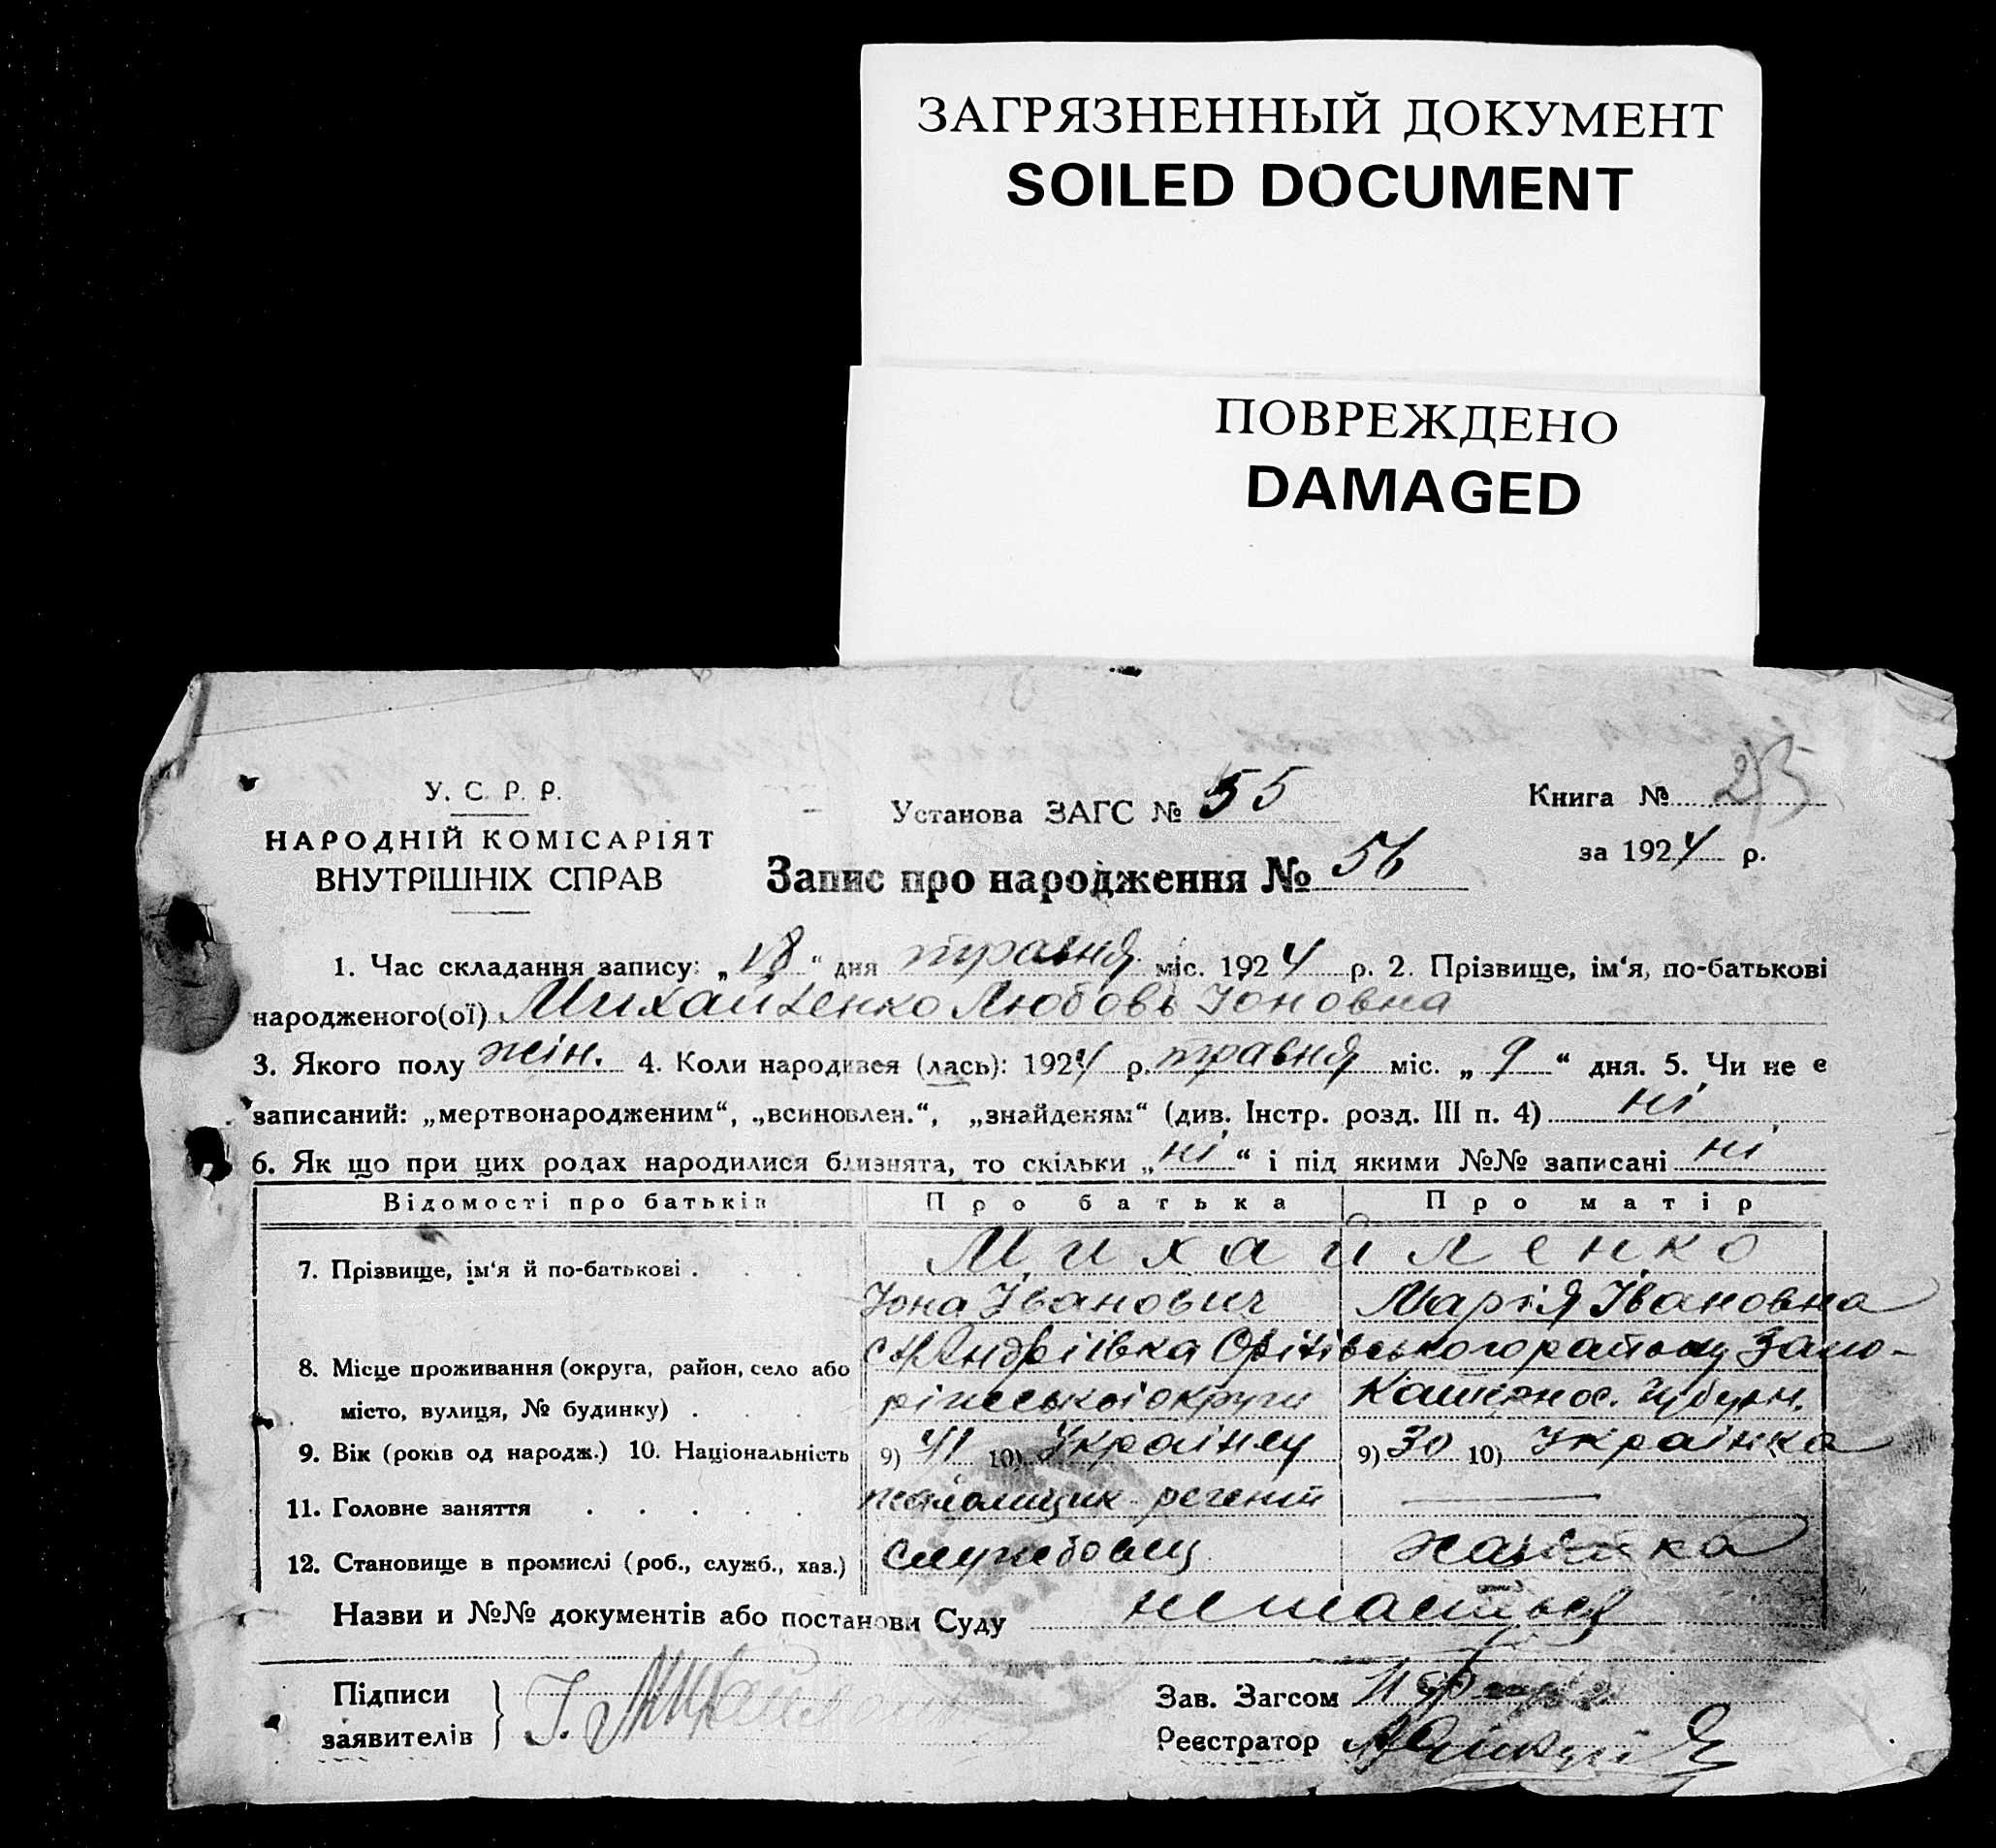 ЗАГРЯЗНЕННЫЙ ДОКУМЕНТ
SOILED DOCUMENT
ПОВРЕЖДЕНО
DAMAGED
У. С. Р. Р.
НАРОДНІЙ КОМІСАРІЯТ
ВНУТРІШНІХ СПРАВ
Установа ЗАГС № 55
Книга №
за 1924 р.
Запис про народження № 56
1. Час складання запису: „18“ дня травня міс. 1924 р. 2. Прізвище, ім‘я, по-батькові
народженого(ої) Михайленко Любовь Іоновна
3. Якого полу жін. 4. Коли народився (лась): 1924 р. травня міс. „9“ дня. 5. Чи не є
записаний: „мертвонародженим“, „всиновлен.“, „знайденям“ (див. Інстр. розд. III п. 4) ні
6. Як що при цих родах народилися близнята, то скільки „ні“ і під якими №№ записані ні
Відомості про батьків Про батька Про матір
7. Прізвище, ім‘я й по-батькові . . . Михайленко
Іона Іванович Марія Івановна
8. Місце проживання (округа, район, село або Андріівка района Запо-
місто, вулиця, № будинку) . . . округи
9. Вік (років од народж.) 10. Національність 9) 41 10) Украінец 9) 30 10) Украінка
11. Головне заняття . . . . . псаломщик-регент —
12. Становище в промислі (роб., служб., хаз.) службовец хазяйка
Назви и №№ документів або постанови Суду
Підписи
заявителів } І. Михайленко
Зав. Загсом
Реєстратор